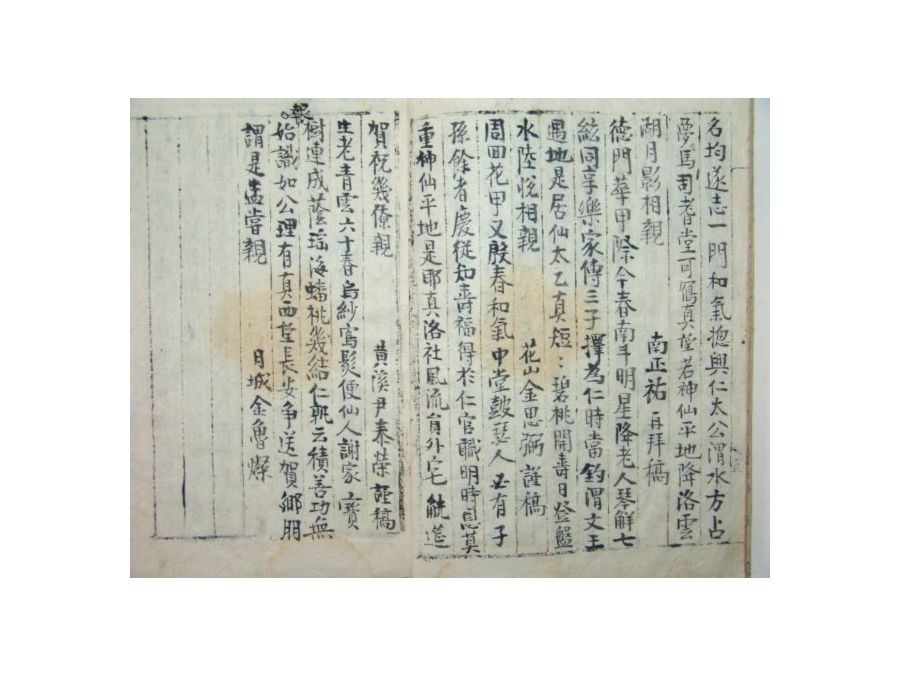 名均遂志一門和氣揔與仁太公渭水方占
夢馬司耆堂可寫真望若神仙平地降洛雲
湖月影相親
南正祐 再拜稿
德門華甲際今春南斗明星降老人琴解七
絃同享樂家傳三子擇為仁時當釣渭文王
遇地是居仙太乙真短〻碧桃開壽日登盤
水陸悅相親
花山金思弼謹稿
周回花甲又殷春和氣中堂鼓瑟人必有子
孫餘者慶從知壽福得於仁官職明時恩莫
重神仙平地是耶真洛社風流肯外宅觥筵
賀祝幾僚親
黃溪尹泰榮謹稿
生老青雲六十春烏紗寫髮便仙人謝家寶
樹連成蔭瑤海蟠桃幾結仁孰云積善功無
報
始識如公理有真西望長安爭送賀鄉朋
謂是孟嘗親
月城金魯燦